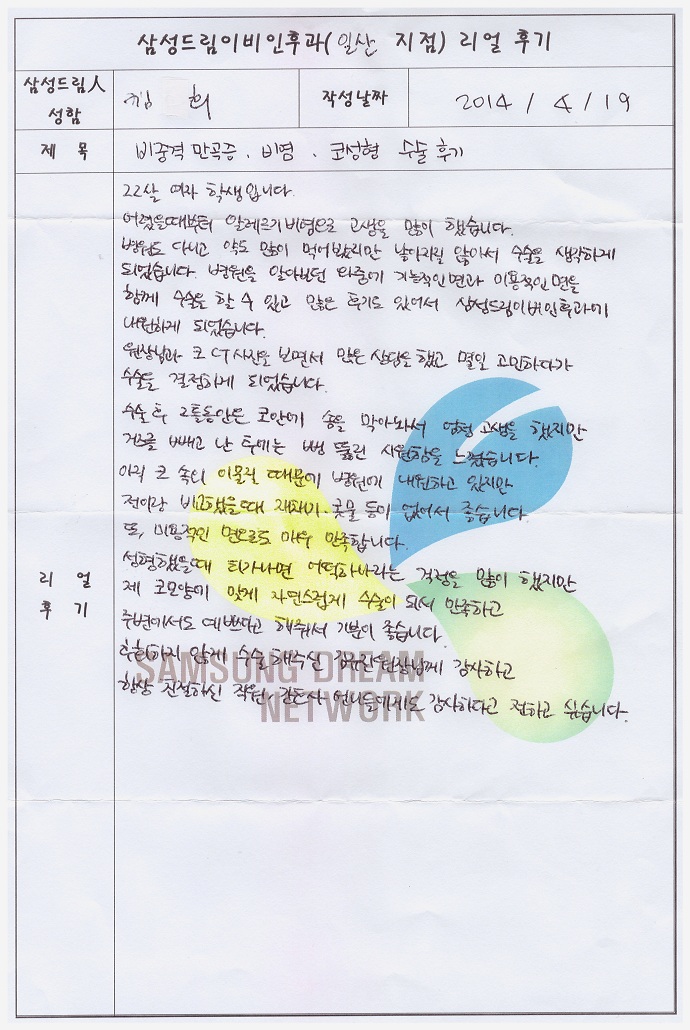 삼성드림이비인후과(일산 지점) 리얼 후기
삼성드림人
성함
김 희
작성날짜
2014 / 4 / 19
제 목
비중격 만곡증 . 비염 . 코성형 수술 후기
22살 여자 학생입니다.
어렸을때부터 알레르기비염으로 고생을 많이 했습니다.
병원도 다니고 약도 많이 먹어봤지만 낳아지질 않아서 수술을 생각하게
되었습니다. 병원을 알아보던 와중에 기능적인면과 미용적인면을
함께 수술을 할 수 있고 많은 후기도 있어서 삼성드림이비인후과에
내원하게 되었습니다.
원장님과 코 CT사진을 보면서 많은 상담을 했고 몇일 고민하다가
수술을 결정하게 되었습니다.
수술 후 2틀동안은 코안에 솜을 막아놔서 엄청 고생을 했지만
거즈를 빼고 난 후에는 뻥 뚫린 시원함을 느꼈습니다.
아직 코 속의 이물질 때문에 병원에 내원하고 있지만
전이랑 비교했을때 재채기.콧물 등이 없어서 좋습니다.
또, 미용적인 면으로도 아주 만족합니다.
성형했을때 티가나면 어떡하나라는 걱정을 많이 했지만
제 코모양에 맞게 자연스럽게 수술이 되서 만족하고
주변에서도 예쁘다고 해줘서 기분이 좋습니다.
후회하지 않게 수술해주신 원장님께 감사하고
항상 친절하신 직원, 간호사 언니들에게도 감사하다고 전하고 싶습니다.
리 얼
후 기
SAMSUNG DREAM
NETWORK